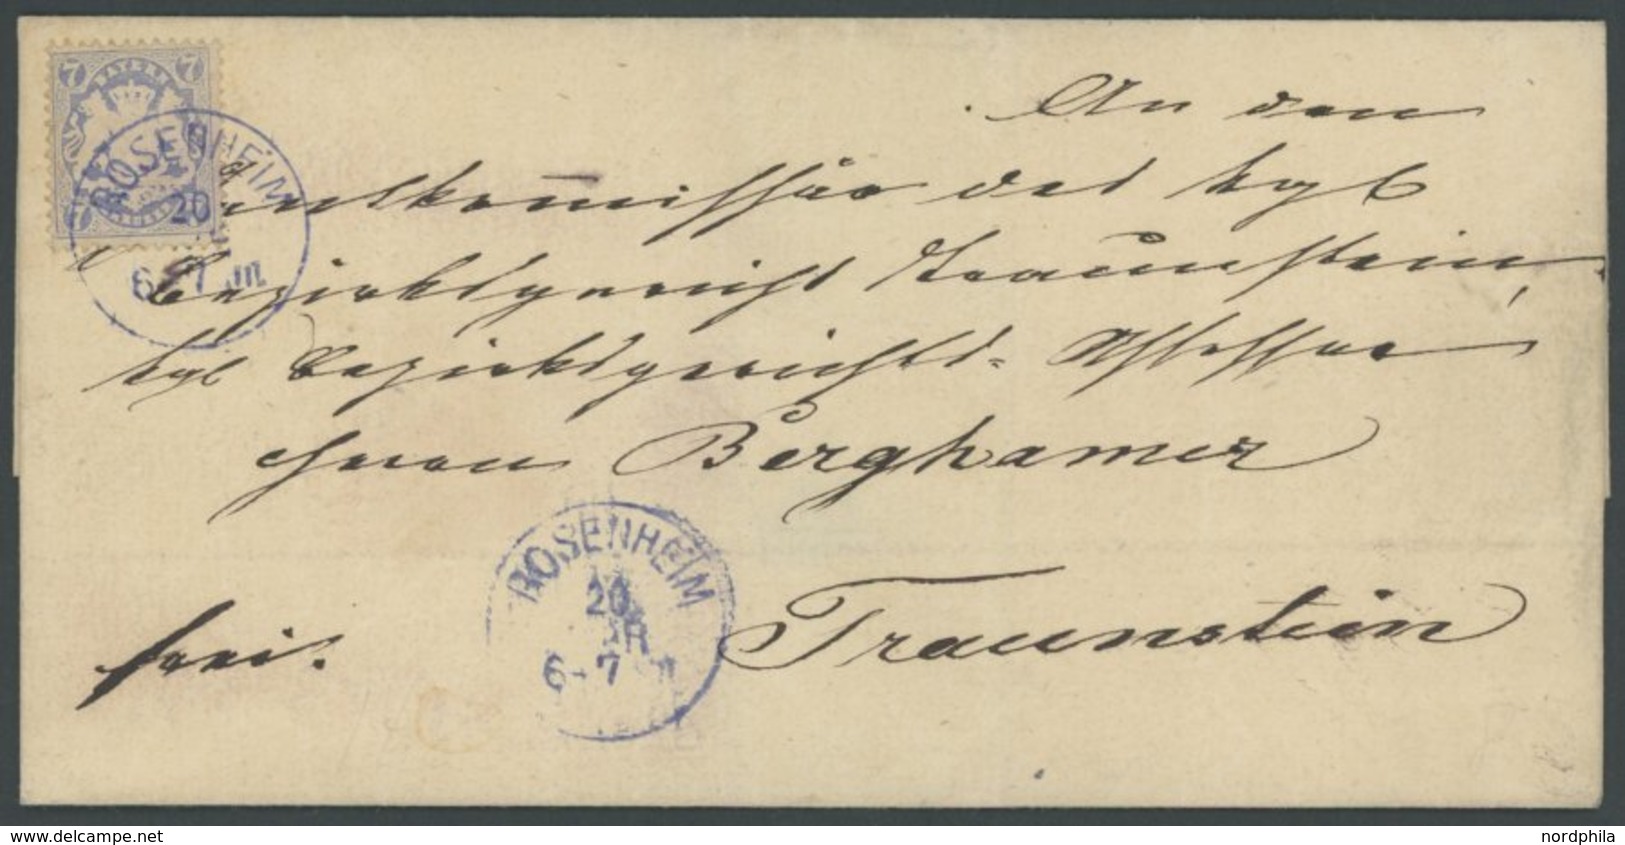 7 BAYERN 7
ROSENHEIM
20
6-7 m
An den
kgl
Bezirksgericht Traunstein,
kgl Bezirksgerichts- Assessor
Herrn Berghamer
ROSENHEIM
20
6-7
Traunstein
frei.
www.delcampe.net
nordphila